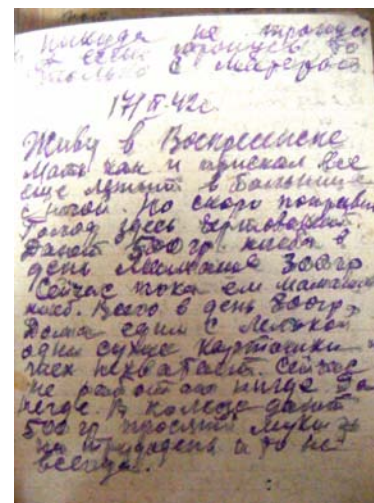 никуда не тронусь
а если тронусь то
только с матерью.
17/II-42г.
Живу в Воскресенске
Мать как и писал все
еще лежит в больнице
с ногой. Но скоро поправи
Голод здесь чертовский.
Дают 500гр. хлеба в
день Мамаше 300гр
Сейчас пока ем мамашин
хлеб. Всего в день 800гр.
Дома едим с Лелькой
одни сухие картошки
и тех нехватает. Сейчас
не работаю нигде да
негде. В колхозе дают
500 гр просяной муки
на трудодень и то не
всегда.